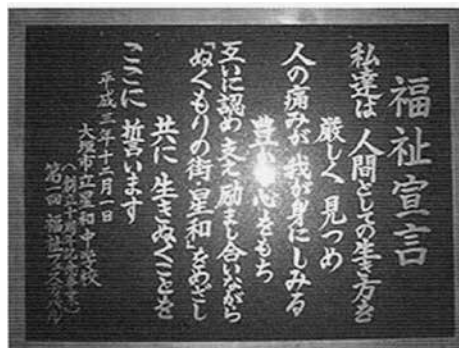 福祉宣言
私達は 人間としての生き方を
厳しく 見つめ
人の痛みが 我が身にしみる
豊かな心をもち
互いに認め 支え 励まし合いながら
「ぬくもりの街・星和」をめざし
共に 生きぬくことを
ここに 誓います
平成三年十二月一日
大垣市立星和中学校
(創立十周年記念事業)
第一回 福祉フェスティバル